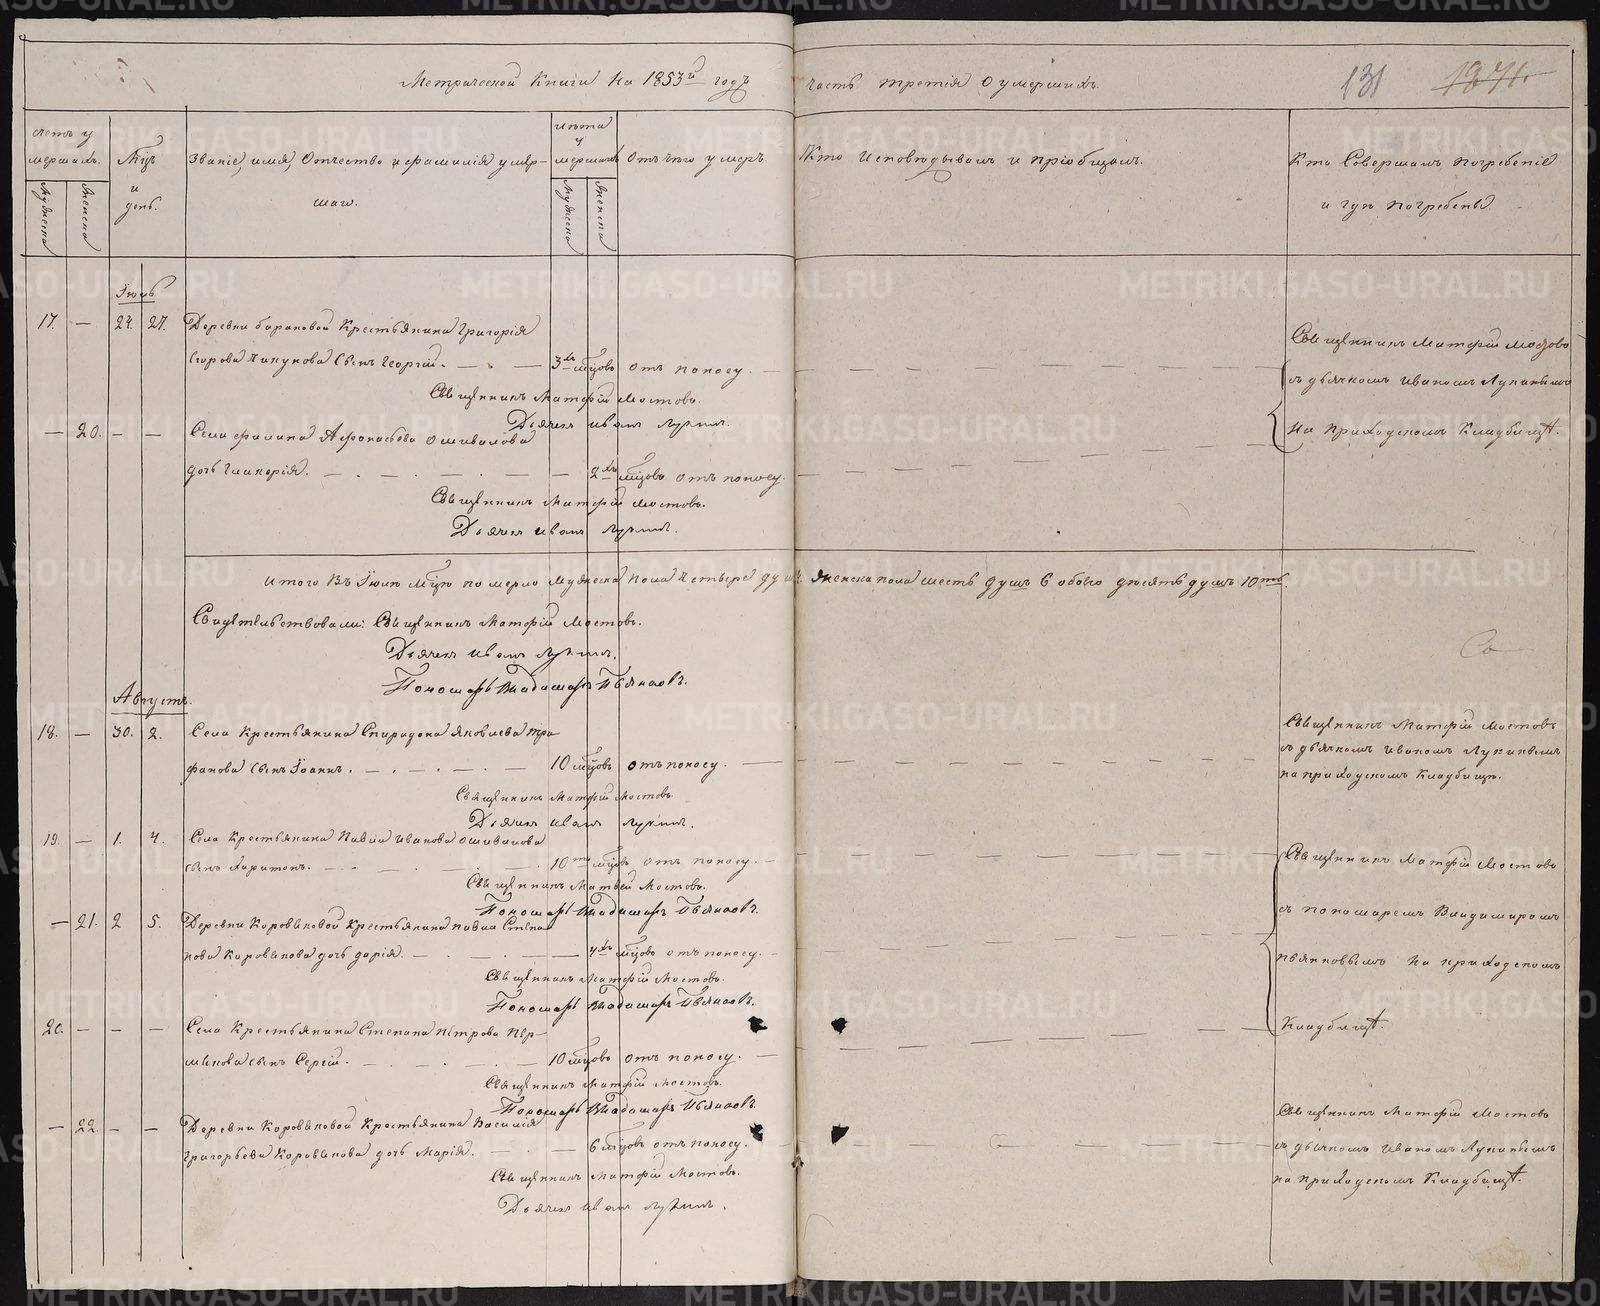 Метрической Книги на 1853й годъ часть третія о умершихъ.
131
1871.
Счетъ умершихъ.
Мужеска
Женска
Мцъ и день.
Званіе, имя, Отчество и фамилія умершаго.
Лѣта умершаго
Мужеска
Женска
Отъ чего умеръ
Кто Исповѣдывалъ и пріобщалъ.
Кто Совершалъ погребеніе
и гдѣ погребены
Іюль
17. — 24. 27. Деревни Барановой Крестьянина Григорія
Егорова Пикунова сынъ Георгій. 3хъ мцовъ отъ поносу.
Священникъ Матфій Мостовъ.
Дьячекъ Иванъ Лукинъ.
Священникъ Матфій Мостовъ
съ дьячкомъ Иваномъ Лукинымъ
на приходскомъ Кладбищѣ.
— 20. — — Села Филипа Афонасьева Ошивалова
дочь Гликерія. 2хъ мцовъ отъ поносу.
Священникъ Матфій Мостовъ.
Дьячекъ Иванъ Лукинъ.
Итого въ Іюлѣ мцѣ померло мужеска пола четыре душъ женска пола шесть душъ 6 обоего десять душъ 10ть.
Свидѣтельствовали: Священникъ Матфій Мостовъ.
Дьячекъ Иванъ Лукинъ.
Пономарь Владимиръ Пьянковъ.
Августъ.
18. — 30. 2. Села Крестьянина Спиридона Яковлева Тра
фанова сынъ Іоаннъ. 10 мцовъ отъ поносу.
Священникъ Матфій Мостовъ
Дьячекъ Иванъ Лукинъ.
Священникъ Матфій Мостовъ
съ дьячкомъ Иваномъ Лукинымъ
на приходскомъ Кладбищѣ.
19. — 1. 4. Села Крестьянина Павла Иванова Ошивалова
сынъ Харитонъ. 10ти мцовъ отъ поносу.
Священникъ Матвѣй Мостовъ.
Пономарь Владимиръ Пьянковъ.
Священникъ Матфій Мостовъ
съ пономаремъ Владимиромъ
Пьянковымъ на приходскомъ
Кладбищѣ.
— 21. 2 5. Деревни Коровяковой Крестьянина Павла Степа
нова Коровякова дочь Дарія. 4хъ мцовъ отъ поносу.
Священникъ Матфій Мостовъ.
Пономарь Владимиръ Пьянковъ.
20. — — — Села Крестьянина Степана Петрова Пер-
мякова сынъ Сергій. 10 мцовъ отъ поносу.
Священникъ Матфій Мостовъ.
Пономарь Владимиръ Пьянковъ.
— 22. — — Деревни Коровяковой Крестьянина Василія
Григорьева Коровякова дочь Марія. 6 мцовъ отъ поносу.
Священникъ Матфій Мостовъ.
Дьячекъ Иванъ Лукинъ.
Священникъ Матфій Мостовъ
съ дьячкомъ Иваномъ Лукинымъ
на приходскомъ Кладбищѣ.
METRIKI.GASO-URAL.RU